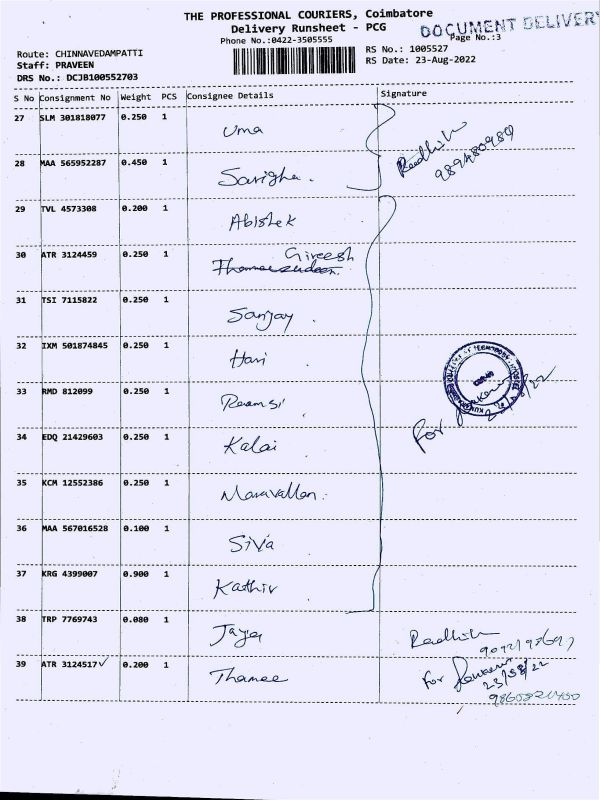 THE PROFESSIONAL COURIERS, Coimbatore
Delivery Runsheet - PCG
DOCUMENT DELIVERY
Phone No.:0422-3505555
Page No.:3
Route: CHINNAVEDAMPATTI
RS No.: 1005527
Staff: PRAVEEN
RS Date: 23-Aug-2022
DRS No.: DCJB100552703
S No Consignment No Weight PCS Consignee Details Signature
27 SLM 301818077 0.250 1 Uma
28 MAA 565952287 0.450 1 Sarigha. Readhik
29 TVL 4573308 0.200 1 Abishek
30 ATR 3124459 0.250 1 Gireesh
31 TSI 7115822 0.250 1 Sanjay.
32 IXM 501874845 0.250 1 Hari.
33 RMD 812099 0.250 1
34 EDQ 21429603 0.250 1 Kalai For
35 KCM 12552386 0.250 1
36 MAA 567016528 0.100 1 Siva
37 KRG 4399007 0.900 1 Kathir
38 TRP 7769743 0.080 1 Jaya Readhik
39 ATR 3124517✓ 0.200 1 Thamee For
23/08/22